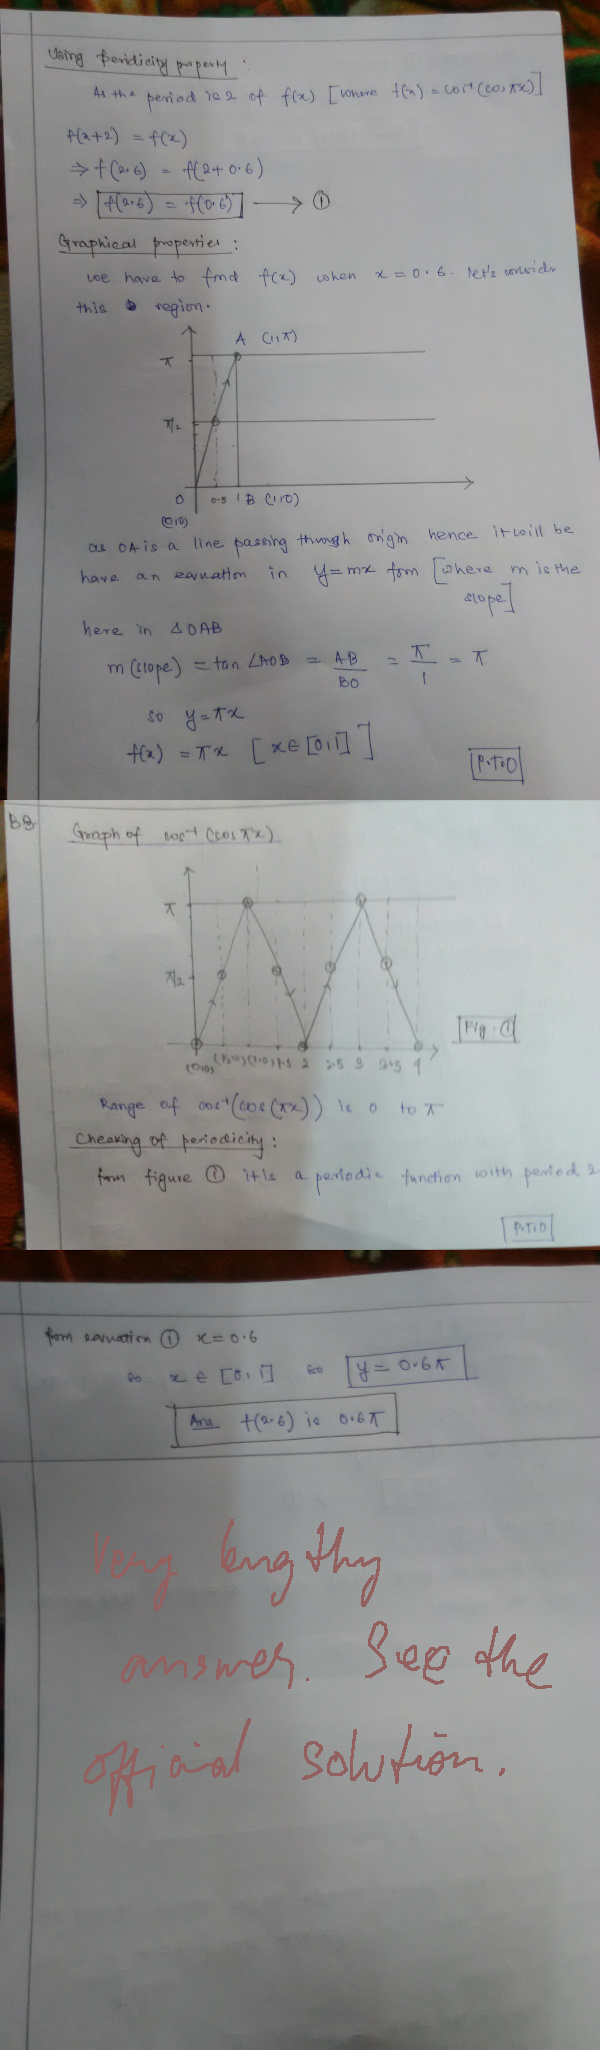 Using Peridicity property :
As the period is 2 of f(x) [where f(x) = cos⁻¹(cos πx)]
f(x+2) = f(x)
⇒ f(2.6) = f(2+0.6)
⇒ f(2.6) = f(0.6) → ①
Graphical properties :
we have to find f(x) when x = 0.6. let's consider
this region.
A (1,π)
π
π/2
0 0.5 1 B (1,0)
(0,0)
as OA is a line passing through origin hence it will be
have an equation in y=mx form [where m is the
slope]
here in △OAB
m (slope) = tan ∠AOB = AB/BO = π/1 = π
so y = πx
f(x) = πx [x ∈ [0,1]]
P.T.O
B8.
Graph of cos⁻¹(cos πx)
π
π/2
(0,0) (1,0) 1.5 2 2.5 3 3.5 4
Fig. ①
Range of cos⁻¹(cos(πx)) is 0 to π
Checking of periodicity :
from figure ① it is a periodic function with period 2
P.T.O
from equation ① x = 0.6
so x ∈ [0,1] so y = 0.6π
Ans f(2.6) is 0.6π
Very lengthy
answer. See the
official solution.